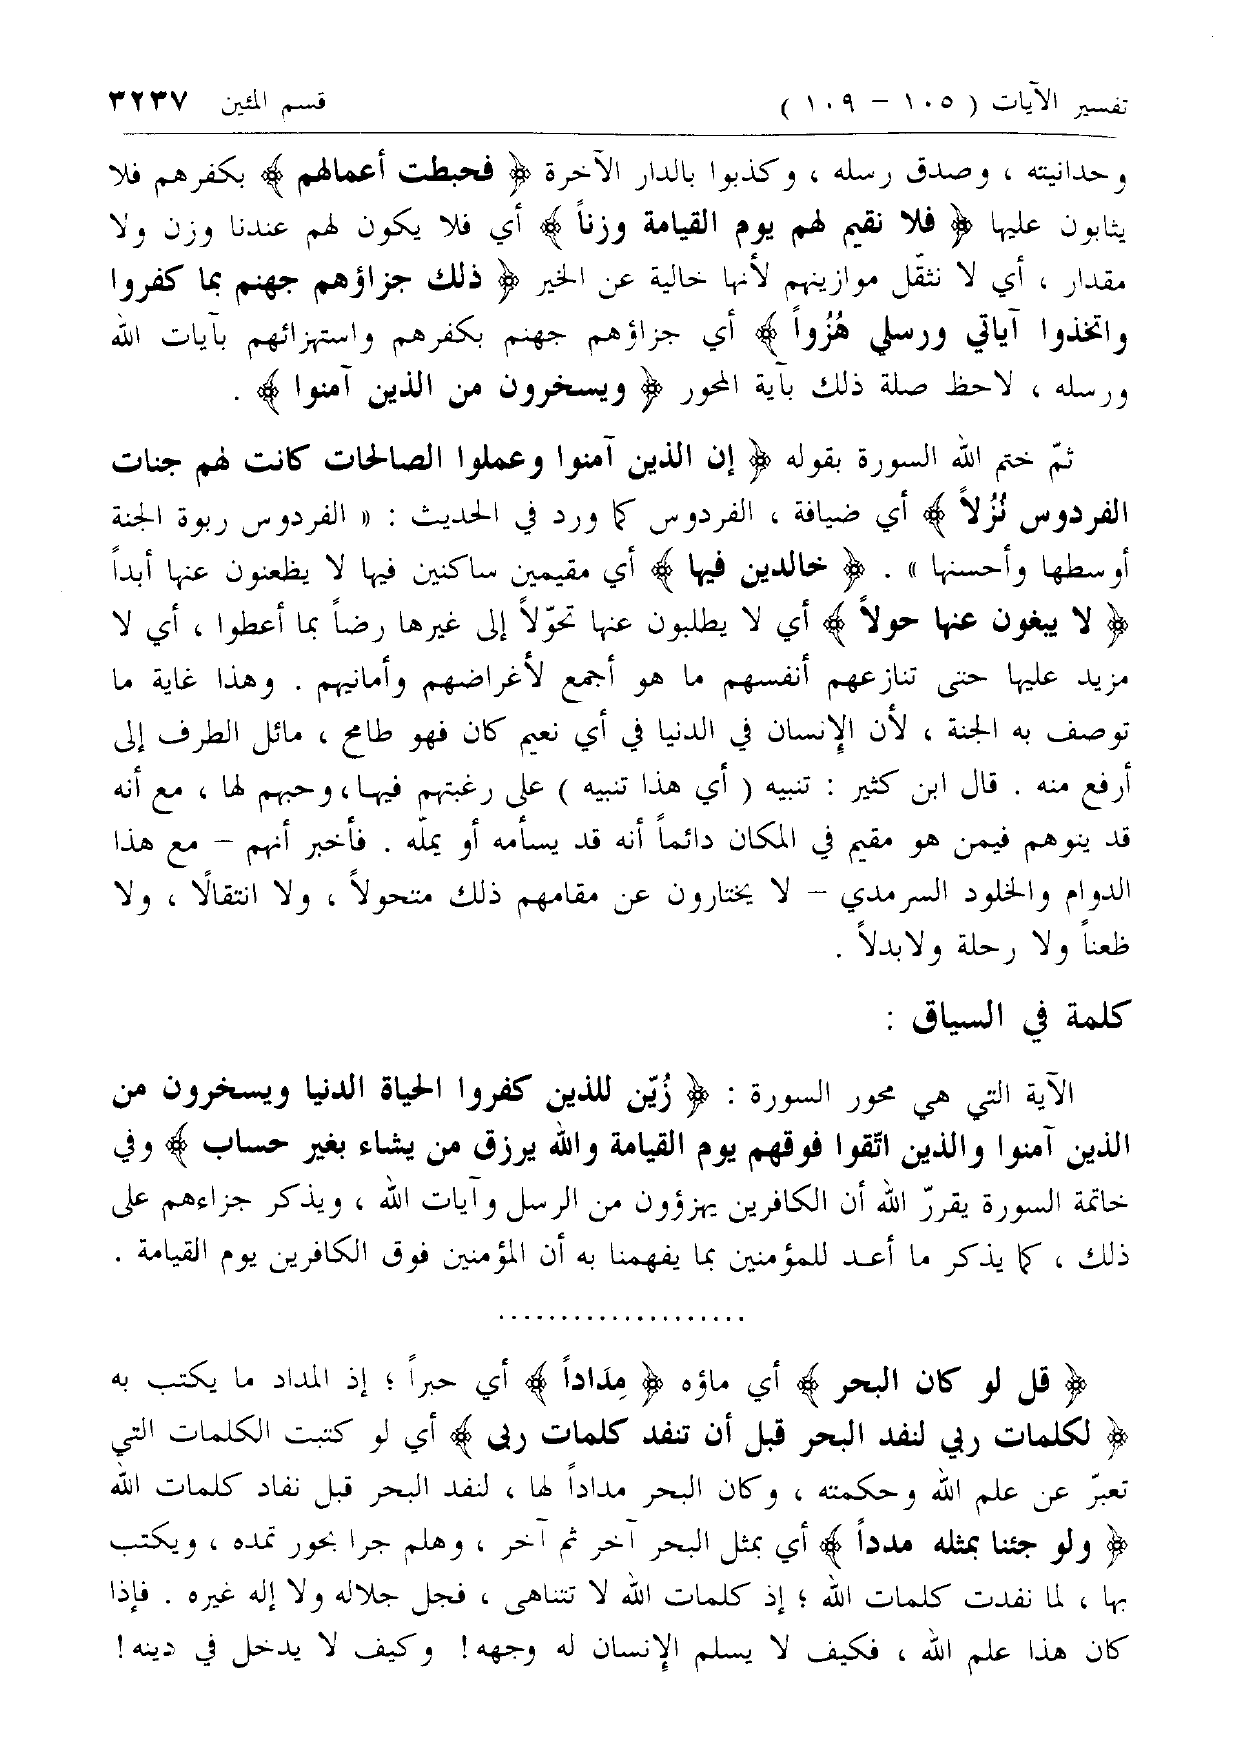 تفسير الآيات ( ١٠٥ – ١٠٩ ) قسم المئين ٣٢٣٧
وحدانيته ، وصدق رسله ، وكذبوا بالدار الآخرة ﴿ فحبطت أعمالهم ﴾ بكفرهم فلا
يثابون عليها ﴿ فلا نقيم لهم يوم القيامة وزناً ﴾ أي فلا يكون لهم عندنا وزن ولا
مقدار ، أي لا نثقّل موازينهم لأنها خالية عن الخير ﴿ ذلك جزاؤهم جهنم بما كفروا
واتخذوا آياتي ورسلي هُزُواً ﴾ أي جزاؤهم جهنم بكفرهم واستهزائهم بآيات الله
ورسله ، لاحظ صلة ذلك بآية المحور ﴿ ويسخرون من الذين آمنوا ﴾ .
ثمّ ختم الله السورة بقوله ﴿ إن الذين آمنوا وعملوا الصالحات كانت لهم جنات
الفردوس نُزُلاً ﴾ أي ضيافة ، الفردوس كما ورد في الحديث : « الفردوس ربوة الجنة
أوسطها وأحسنها » . ﴿ خالدين فيها ﴾ أي مقيمين ساكنين فيها لا يظعنون عنها أبداً
﴿ لا يبغون عنها حولاً ﴾ أي لا يطلبون عنها تحوّلاً إلى غيرها رضاً بما أعطوا ، أي لا
مزيد عليها حتى تنازعهم أنفسهم ما هو أجمع لأغراضهم وأمانيهم . وهذا غاية ما
توصف به الجنة ، لأن الإنسان في الدنيا في أي نعيم كان فهو طامح ، مائل الطرف إلى
أرفع منه . قال ابن كثير : تنبيه ( أي هذا تنبيه ) على رغبتهم فيها ، وحبهم لها ، مع أنه
قد يتوهم فيمن هو مقيم في المكان دائماً أنه قد يسأمه أو يملّه . فأخبر أنهم – مع هذا
الدوام والخلود السرمدي – لا يختارون عن مقامهم ذلك متحولاً ، ولا انتقالًا ، ولا
ظعناً ولا رحلة ولابدلاً .
كلمة في السياق :
الآية التي هي محور السورة : ﴿ زُيّن للذين كفروا الحياة الدنيا ويسخرون من
الذين آمنوا والذين اتّقوا فوقهم يوم القيامة والله يرزق من يشاء بغير حساب ﴾ وفي
خاتمة السورة يقررّ الله أن الكافرين يهزؤون من الرسل وآيات الله ، ويذكر جزاءهم على
ذلك ، كما يذكر ما أعد للمؤمنين بما يفهمنا به أن المؤمنين فوق الكافرين يوم القيامة .
....................
﴿ قل لو كان البحر ﴾ أي ماؤه ﴿ مِدَاداً ﴾ أي حبراً ؛ إذ المداد ما يكتب به
﴿ لكلمات ربي لنفد البحر قبل أن تنفد كلمات ربي ﴾ أي لو كتبت الكلمات التي
تعبرّ عن علم الله وحكمته ، وكان البحر مداداً لها ، لنفد البحر قبل نفاد كلمات الله
﴿ ولو جئنا بمثله مدداً ﴾ أي بمثل البحر آخر ثم آخر ، وهلم جرا بحور تمده ، ويكتب
بها ، لما نفدت كلمات الله ؛ إذ كلمات الله لا تتناهى ، فجل جلاله ولا إله غيره . فإذا
كان هذا علم الله ، فكيف لا يسلم الإنسان له وجهه! وكيف لا يدخل في دينه!